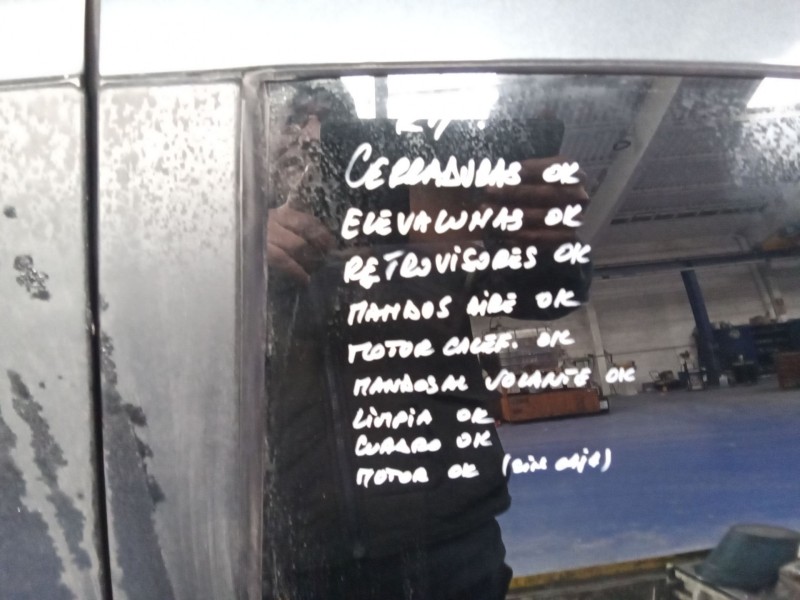 CERRADURAS OK
ELEVALUNAS OK
RETROVISORES OK
MANDOS AIRE OK
MOTOR CALEF. OK
MANDOS AL VOLANTE OK
LIMPIA OK
CUADRO OK
MOTOR OK (SIN CAJA)